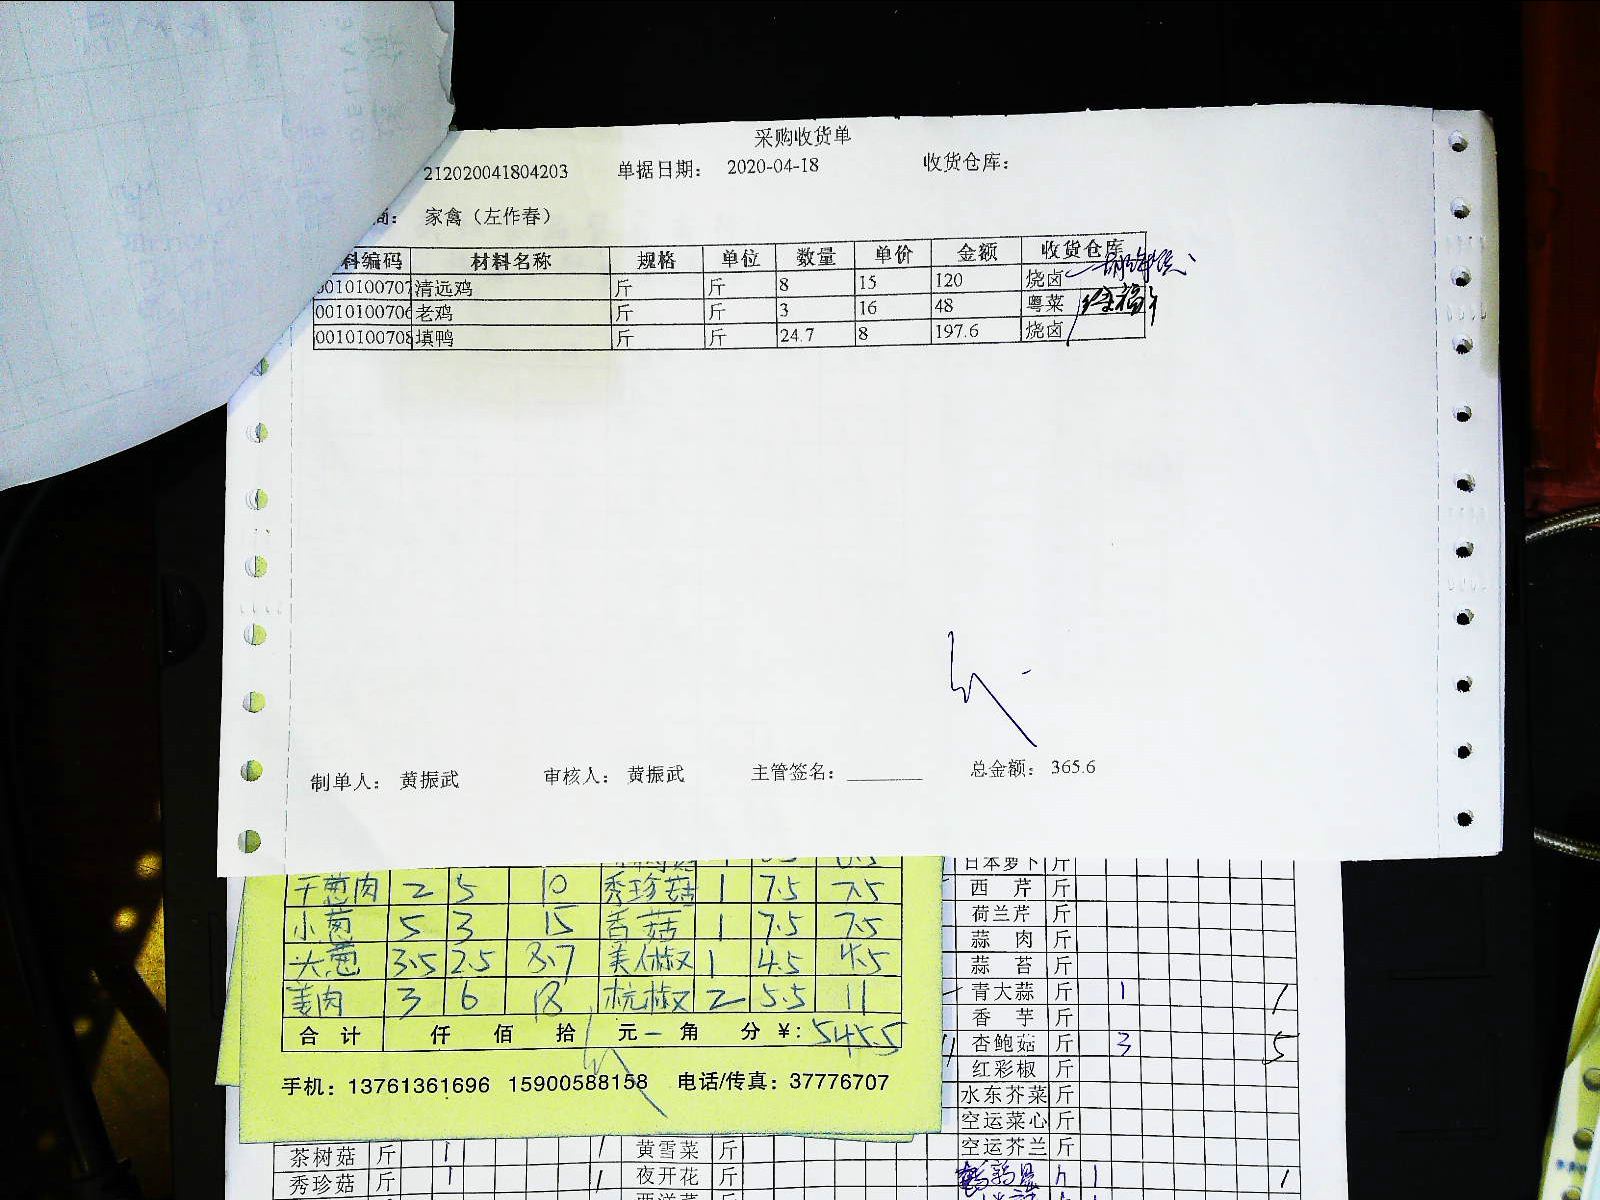 采购收货单
212020041804203 单据日期： 2020-04-18 收货仓库：
商： 家禽（左作春）
料编码 材料名称 规格 单位 数量 单价 金额 收货仓库
0010100707 清远鸡 斤 斤 8 15 120 烧卤
0010100706 老鸡 斤 斤 3 16 48 粤菜
0010100708 填鸭 斤 斤 24.7 8 197.6 烧卤
制单人： 黄振武 审核人： 黄振武 主管签名： 总金额： 365.6
干葱肉 2 5 10 秀珍菇 1 7.5 7.5
小葱 5 3 15 香菇 1 7.5 7.5
大葱 3.5 2.5 8.7 美人椒 1 4.5 4.5
姜肉 3 6 18 杭椒 2 5.5 11
合计 仟 佰 拾 元 角 分 ¥: 545.5
手机：13761361696 15900588158 电话/传真：37776707
日本萝卜 斤
西芹 斤
荷兰芹 斤
蒜肉 斤
蒜苔 斤
青大蒜 斤 1 1
香芋 斤
杏鲍菇 斤 3 5
红彩椒 斤
水东芥菜 斤
空运菜心 斤
空运芥兰 斤
茶树菇 斤 1 1 黄雪菜 斤
秀珍菇 斤 1 1 夜开花 斤